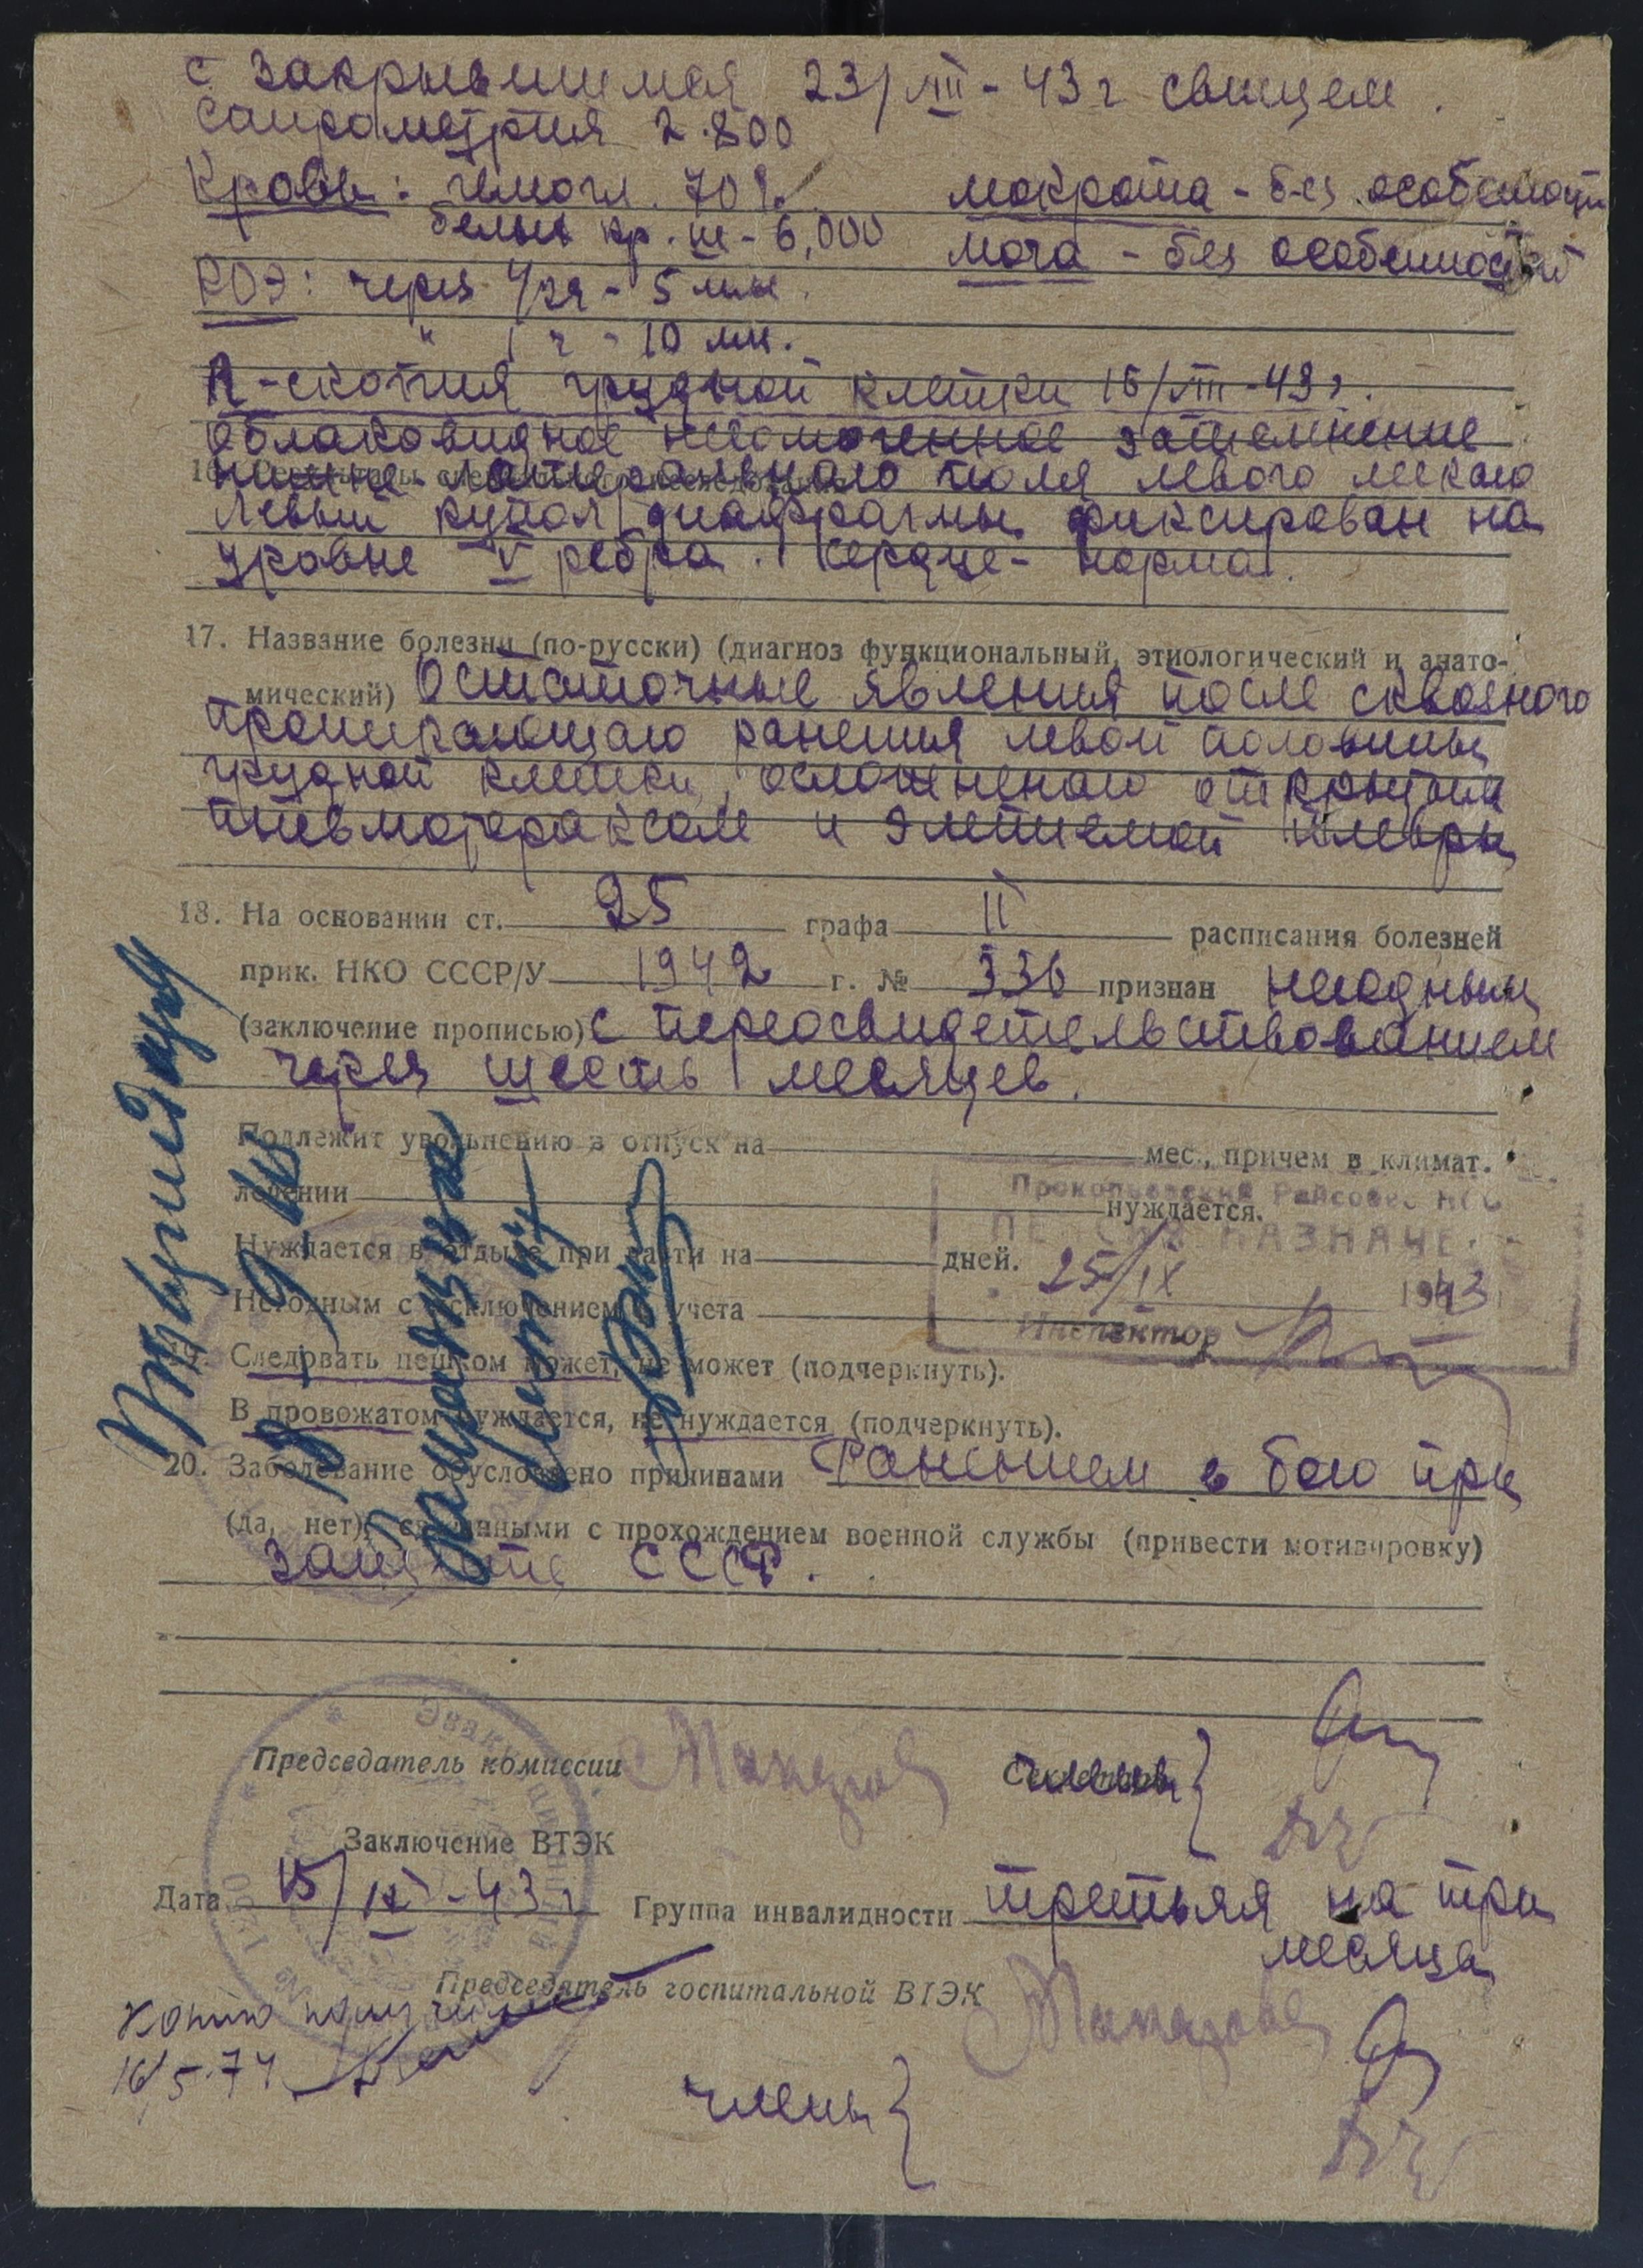 с закрывшимся 23/VIII-43 г свищем.
Спирометрия 2.800
Кровь: гемогл. 70% мокрота - без особенност
белых кр. ш - 6,000 моча - без особенностей
РОЭ: через 1/2 ч - 5 мм.
" 1 ч - 10 мм.
R-скопия грудной клетки 16/VIII-43 г.
облаковидное затемнение
16.
поля левого легкого
Левый купол диафрагмы фиксирован на
уровне V ребра. Сердце - норма.
17. Название болезни (по-русски) (диагноз функциональный, этиологический и анато-
мический) Остаточные явления после сквозного
проникающего ранения левой половины
грудной клетки, осложненного открытым
пневмотораксом и эмпиемой плевры
18. На основании ст. 25 графа II расписания болезней
прик. НКО СССР/У 1942 г. № 336 признан негодным
(заключение прописью) с переосвидетельствованием
через шесть месяцев.
Подлежит увольнению в отпуск на мес., причем в климат.
лечении нуждается.
Нуждается в отдыхе при части на дней.
Негодным с исключением с учета
19. Следовать пешком может, не может (подчеркнуть).
В провожатом нуждается, не нуждается (подчеркнуть).
Прокопьевский Райсобес
ПЕНСИЯ НАЗНАЧЕ
25/IX 1943
Инспектор
20. Заболевание обусловлено причинами Ранением в бою при
(да, нет), связанными с прохождением военной службы (привести мотивировку)
защите СССР.
Председатель комиссии члены
Заключение ВТЭК
Дата 15/IX-43 г Группа инвалидности третья на три
месяца
Председатель госпитальной ВТЭК
Копию получил
16/5-74
члены